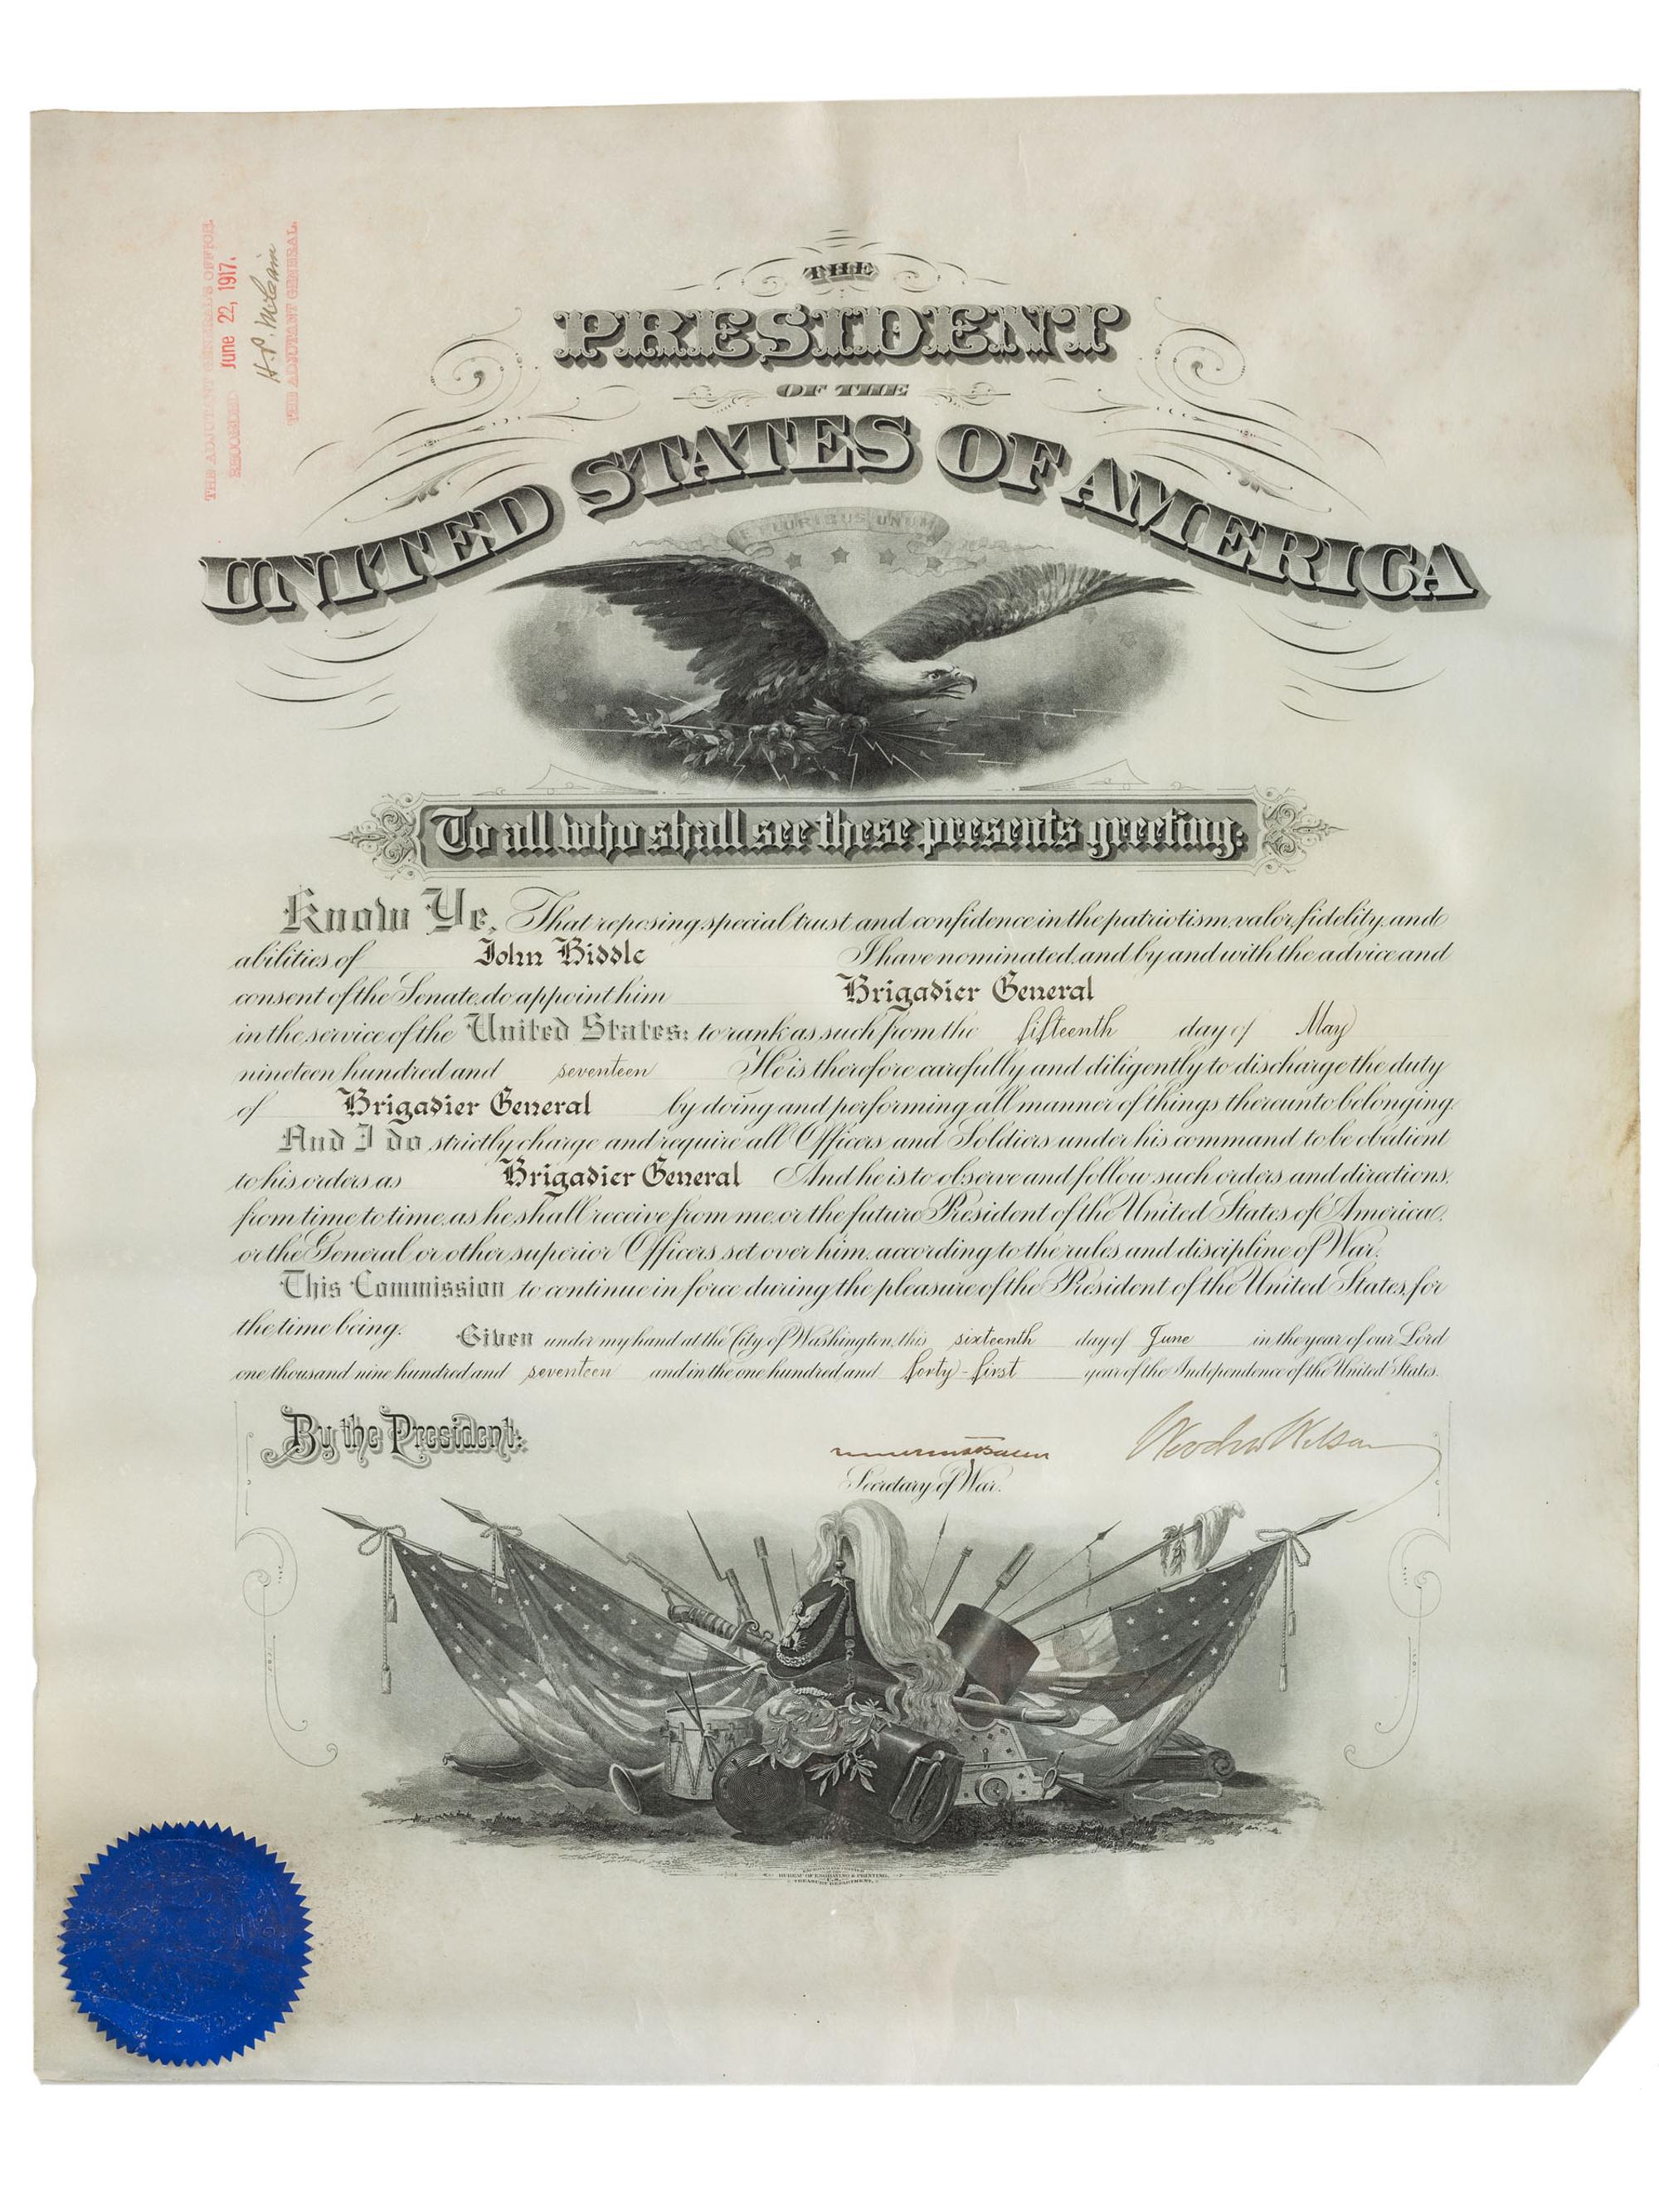 THE ADJUTANT GENERAL'S OFFICE,
RECORDED June 22, 1917.
H.P. McCain
THE ADJUTANT GENERAL.
THE
PRESIDENT
OF THE
UNITED STATES OF AMERICA
E PLURIBUS UNUM
To all who shall see these presents greeting:
Know Ye, That reposing special trust and confidence in the patriotism, valor, fidelity, and
abilities of John Biddle I have nominated, and by and with the advice and
consent of the Senate, do appoint him Brigadier General
in the service of the United States: to rank as such from the fifteenth day of May
nineteen hundred and seventeen He is therefore carefully and diligently to discharge the duty
of Brigadier General by doing and performing all manner of things thereunto belonging.
And I do strictly charge and require all Officers and Soldiers under his command to be obedient
to his orders as Brigadier General And he is to observe and follow such orders and directions,
from time to time, as he shall receive from me, or the future President of the United States of America,
or the General or other superior Officers set over him, according to the rules and discipline of War.
This Commission to continue in force during the pleasure of the President of the United States, for
the time being. Given under my hand at the City of Washington, this sixteenth day of June in the year of our Lord
one thousand nine hundred and seventeen and in the one hundred and forty-first year of the Independence of the United States.
By the President:
Woodrow Wilson
Secretary of War.
BUREAU OF ENGRAVING & PRINTING,
TREASURY DEPARTMENT.